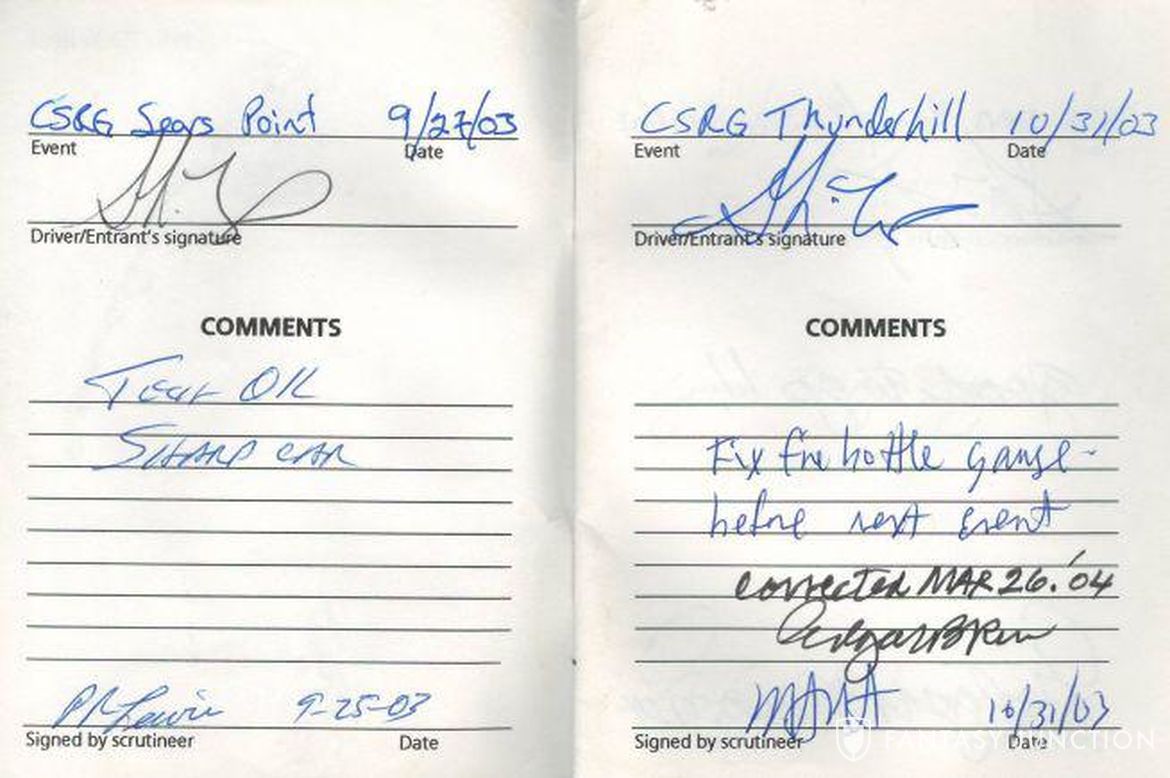 CSRG Sears Point 9/27/03
Event Date
Driver/Entrant's signature
COMMENTS
Tech OK
SHARP CAR
9-25-03
Signed by scrutineer Date
CSRG Thunderhill 10/31/03
Event Date
Driver/Entrant's signature
COMMENTS
Fix fire bottle gauge -
before next event
corrected MAR 26. '04
10/31/03
Signed by scrutineer Date
FANTASY JUNCTION